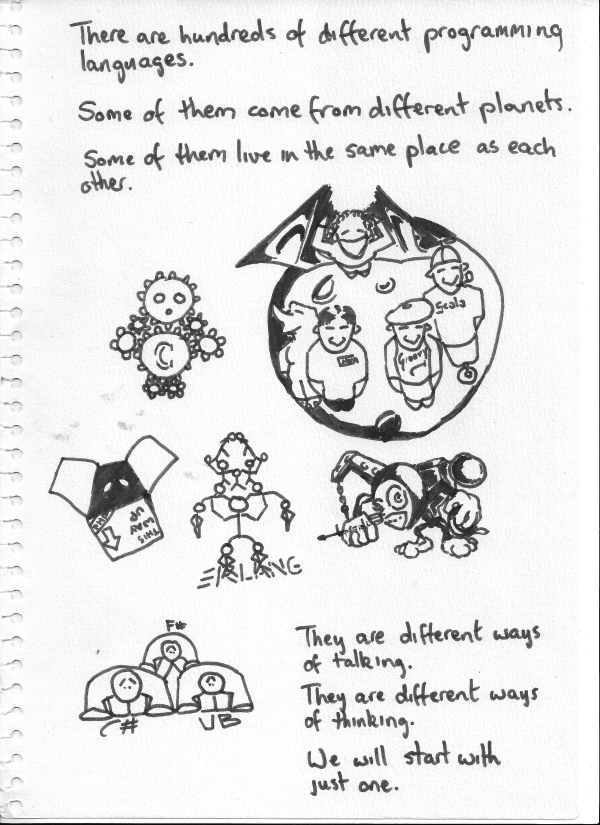 There are hundreds of different programming
languages.
Some of them come from different planets.
Some of them live in the same place as each
other.
Scala
groovy
C
THIS
WAY
UP
ERLANG
F#
C#
VB
They are different ways
of talking.
They are different ways
of thinking.
We will start with
just one.